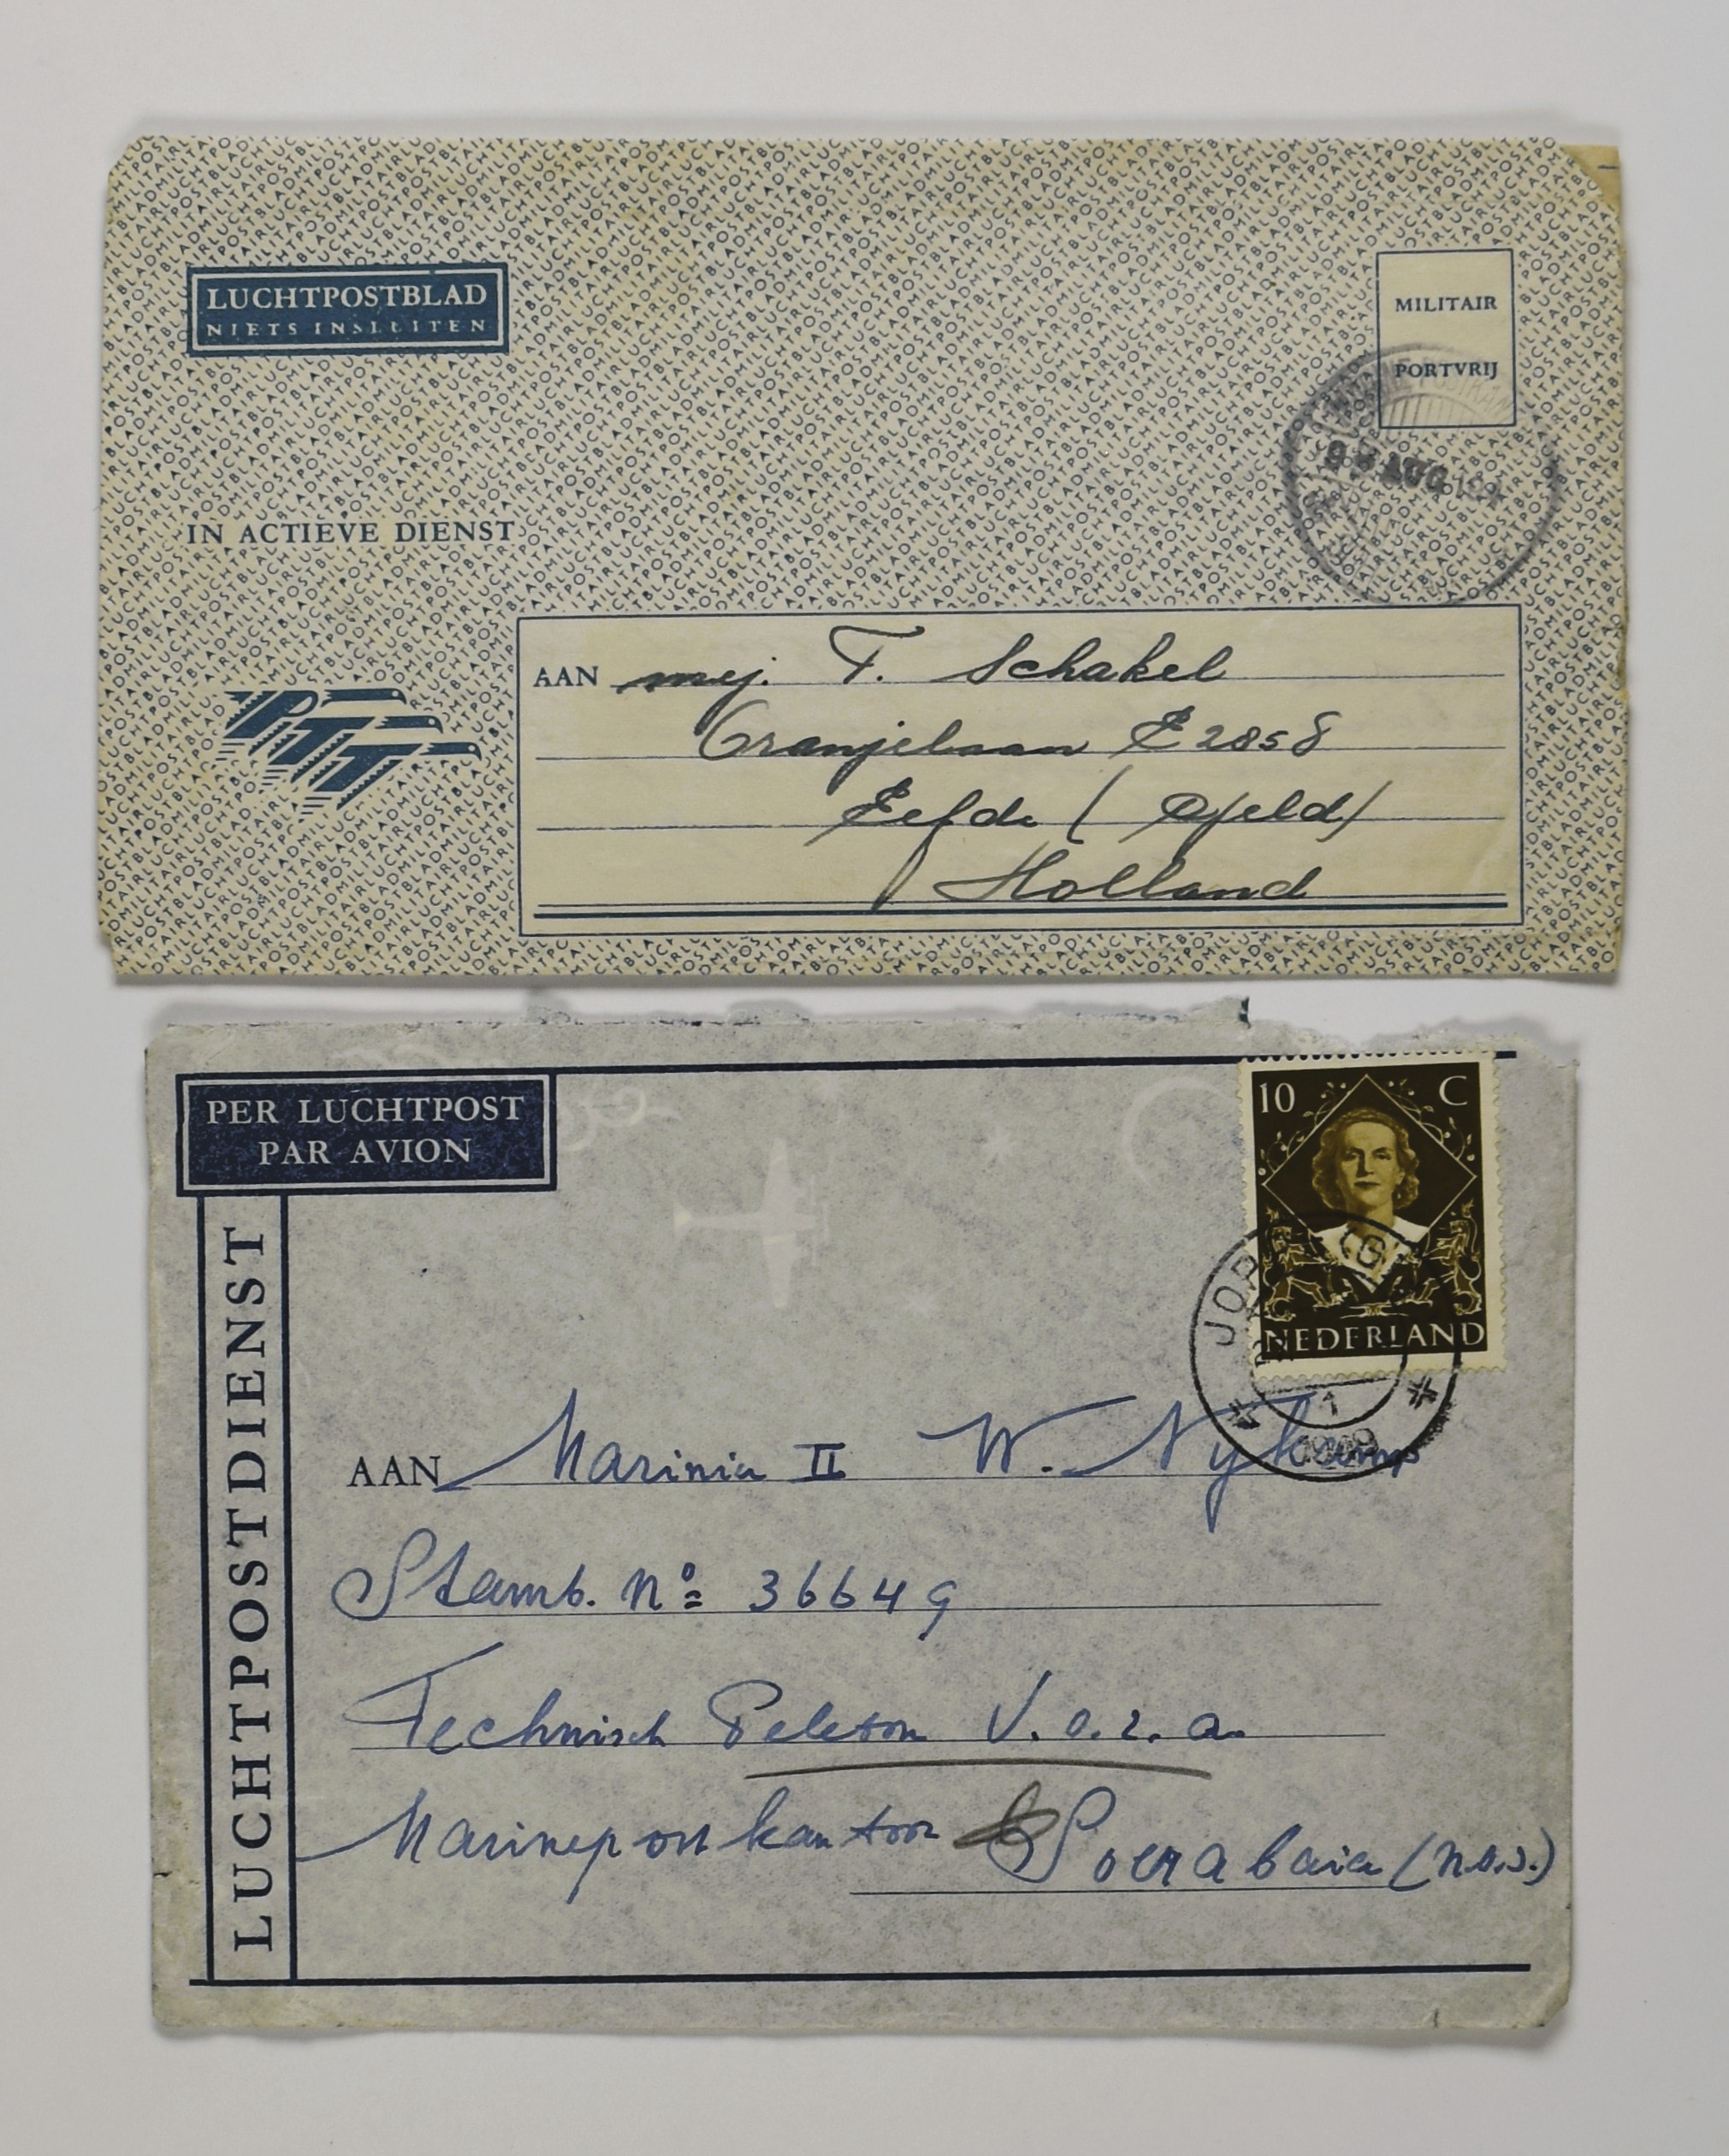 LUCHTPOSTBLAD
NIETS INSLUITEN
MILITAIR
PORTVRIJ
AUG
IN ACTIEVE DIENST
PTT
AAN mej. T. Schakel
Oranjelaan E 2858
Eefde ( Gjeld)
Holland
PER LUCHTPOST
PAR AVION
LUCHTPOSTDIENST
10 C
NEDERLAND
1
1949
AAN Marinier II W. Nykamp
Stamb. No: 36649
Technisch Peleton V.o.z.a.
Marinepostkantoor Soerabaia (N.O.I.)